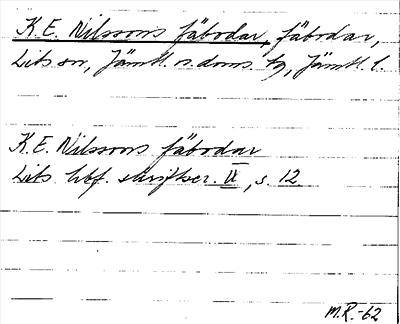 K. E. Nilssons fäbodar, fäbodar,
Lits sn, Jämtl. n. doms. tg, Jämtl. l.
K. E. Nilssons fäbodar
Lits hbf. skriftser. IX, s. 12
M.R.-62